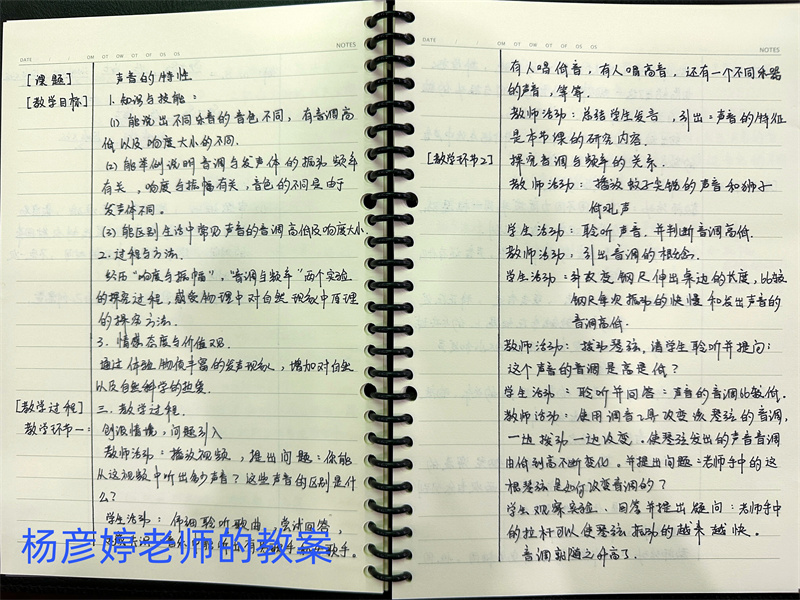 DATE
NOTES
[课题] 声音的特性
[教学目标] 1.知识与技能：
(1) 能说出不同乐音的音色不同，有音调高
低以及响度大小的不同.
(2) 能举例说明音调与发声体的振动频率
有关，响度与振幅有关，音色的不同是由于
发声体不同。
(3) 能区别生活中常见声音的音调高低及响度大小.
2.过程与方法.
经历"响度与振幅"，"音调与频率"两个实验
的探究过程，物理中对自然现象中原理
的探究方法.
3. 情感态度与价值观.
通过体验物质丰富的发声现象，增加对自然
以及自然科学的热爱.
[教学过程] 三.教学过程.
教学环节一: 创设情境，问题引入
教师活动：播放视频，提出问题：你能
从这视频中听出多少声音？这些声音的区别是什
么？
学生活动：仔细聆听歌曲，尝试回答，
歌手.
杨彦婷老师的教案
DATE
NOTES
有人唱低音，有人唱高音，还有一个不同乐器
的声音，等等.
教师活动：总结学生发言，引出：声音的特征
是本节课的研究内容.
[教学环节2] 探究音调与频率的关系.
教师活动：播放蚊子尖锐的声音和狮子
低吼声
学生活动：聆听声音.并判断音调高低.
教师活动：引出音调的概念.
学生活动：改变钢尺伸出桌边的长度，比较
钢尺每次振动的快慢和发出声音的
音调高低.
教师活动：拨动琴弦，请学生聆听并提问：
这个声音的音调是高是低？
学生活动：聆听并回答：声音的音调比较低.
教师活动：使用调音工具改变该琴弦的音调，
一边拨动一边改变.使琴弦发出的声音音调
由低到高不断变化。并提出问题：老师手中的这
根琴弦是如何改变音调的？
学生观察实验、回答并提出疑问：老师手中
的拉杆可以使琴弦振动的越来越快。
音调就随之升高了.